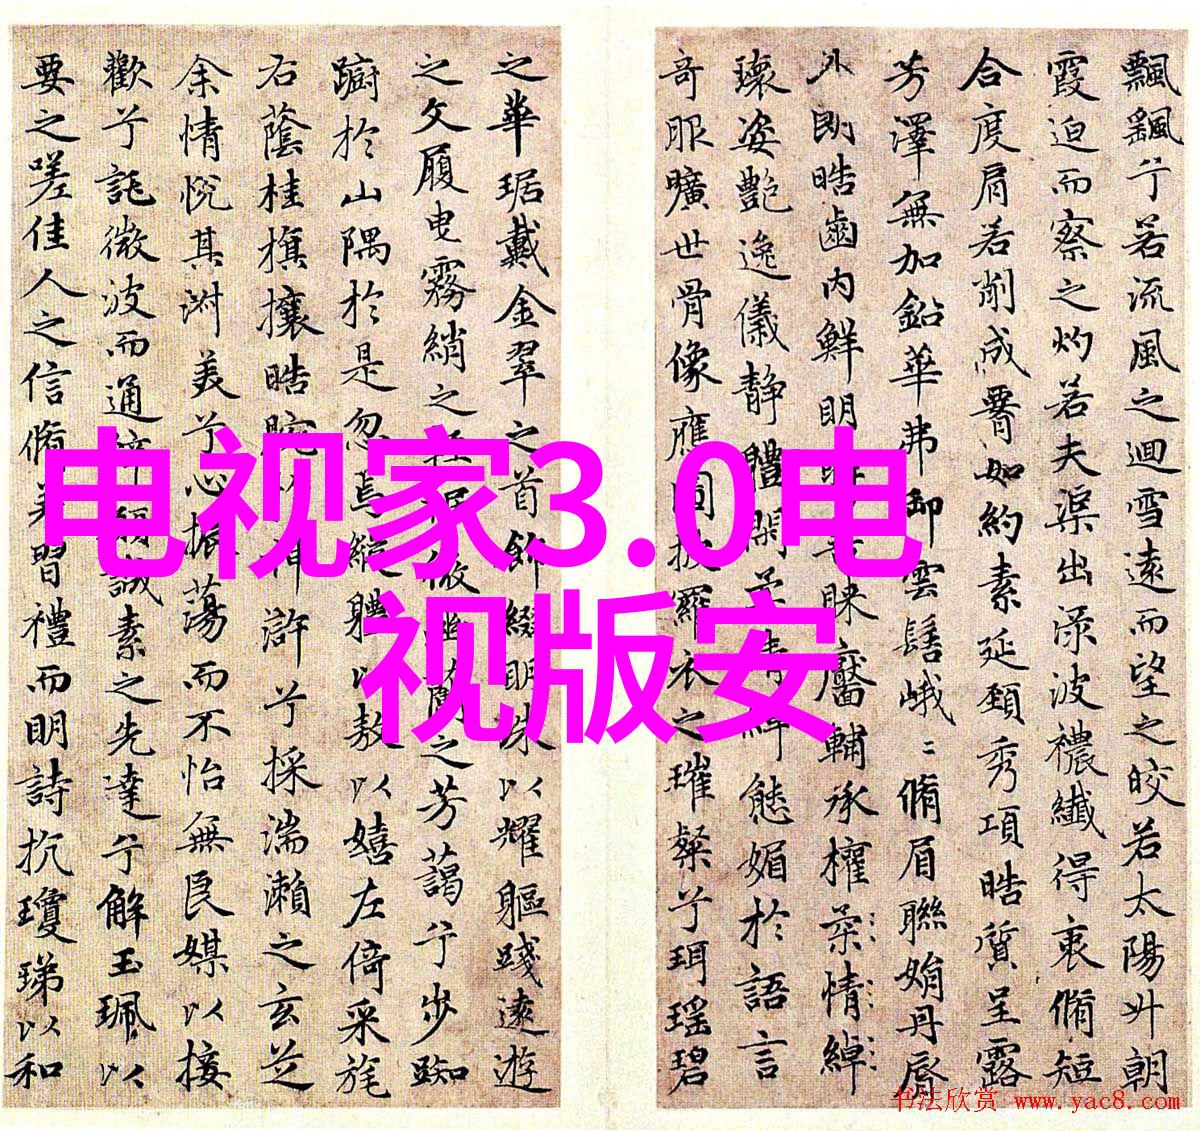 飄飖兮若流風之迴雪遠而望之皎若太陽升朝
霞迫而察之灼若夫渠出淥波穠纖得衷脩短
合度肩若削成腰如約素延頸秀項皓質呈露
芳澤無加鉛華弗御雲髻峨〻脩眉聯娟丹脣
外朗皓齒內鮮明眸善睞靨輔承權柔情綽
瓌姿艷逸儀静體閑柔情綽態媚於語言
奇服曠世骨像應圖披羅衣之璀粲兮珥瑤碧
之華琚戴金翠之首飾綴明珠以耀軀踐遠遊
之文履曳霧綃之輕裾微幽蘭之芳藹兮步踟
躕於山隅於是忽焉縱體以敖以嬉左倚采旄
右蔭桂旗攘皓腕於神滸兮採湍瀨之玄芝
余情悅其淑美兮心振蕩而不怡無良媒以接
歡兮託微波而通辭願誠素之先達兮解玉珮以
要之嗟佳人之信脩羌習禮而明詩抗瓊珶以和
电视家3.0电
视版安
书法欣赏 www.yac8.com